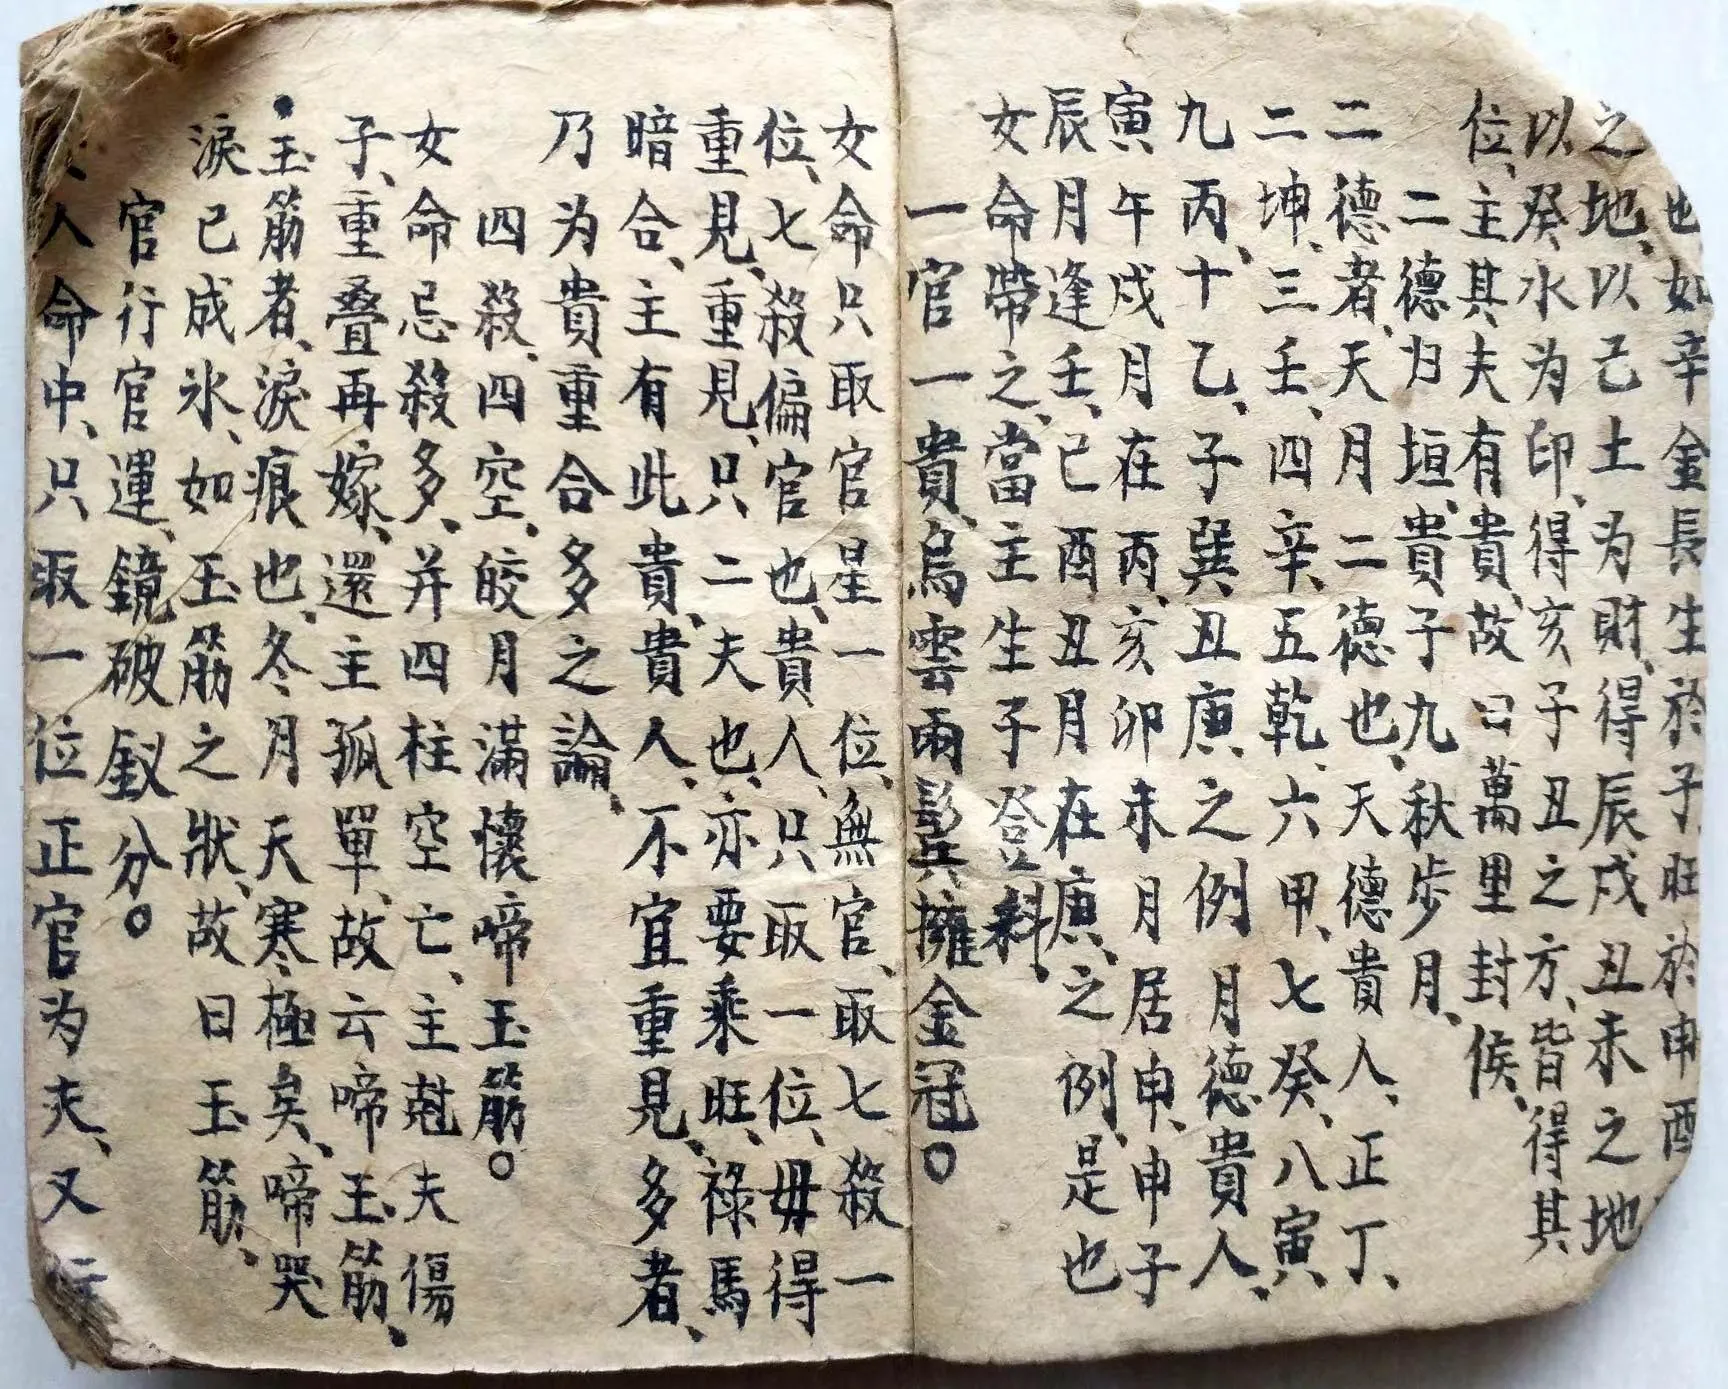 也、如辛金長生於子、旺於申酉
之地、以己土为財、得辰戌丑未之地
以癸水为印、得亥子丑之方、皆得其
位、主其夫有貴、故曰萬里封侯、
二德归垣、貴子九秋步月、
二德者、天月二德也、天德貴人、正丁、
二坤、三壬、四辛、五乾、六甲、七癸、八寅、
九丙、十乙、子巽丑庚、之例月德貴人、
寅午戌月在丙、亥卯未月居申、申子
辰月逢壬、巳酉丑月在庚、之例、是也
女命帶之、當主生子登科、
一官一貴、烏雲兩鬂擁金冠。
女命只取官星一位、無官、取七殺一
位、七殺偏官也、貴人、只取一位、毋得
重見、重見、只二夫也、亦要乘旺、祿馬
暗合、主有此貴、貴人、不宜重見、多者、
乃为貴重合多之論、
四殺、四空、皎月滿懷啼玉筋。
女命忌殺多、并四柱空亡、主尅夫傷
子、重叠再嫁、還主孤單、故云啼玉筋、
玉筋者、淚痕也、冬月天寒極矣、啼哭
淚已成氷、如玉筋之狀、故曰玉筋、
官行官運、鏡破釵分。
人命中、只取一位正官为夫、又